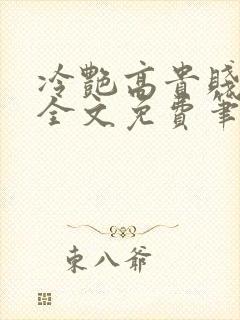 冷艷高貴賤
全文免費筆
東八爺